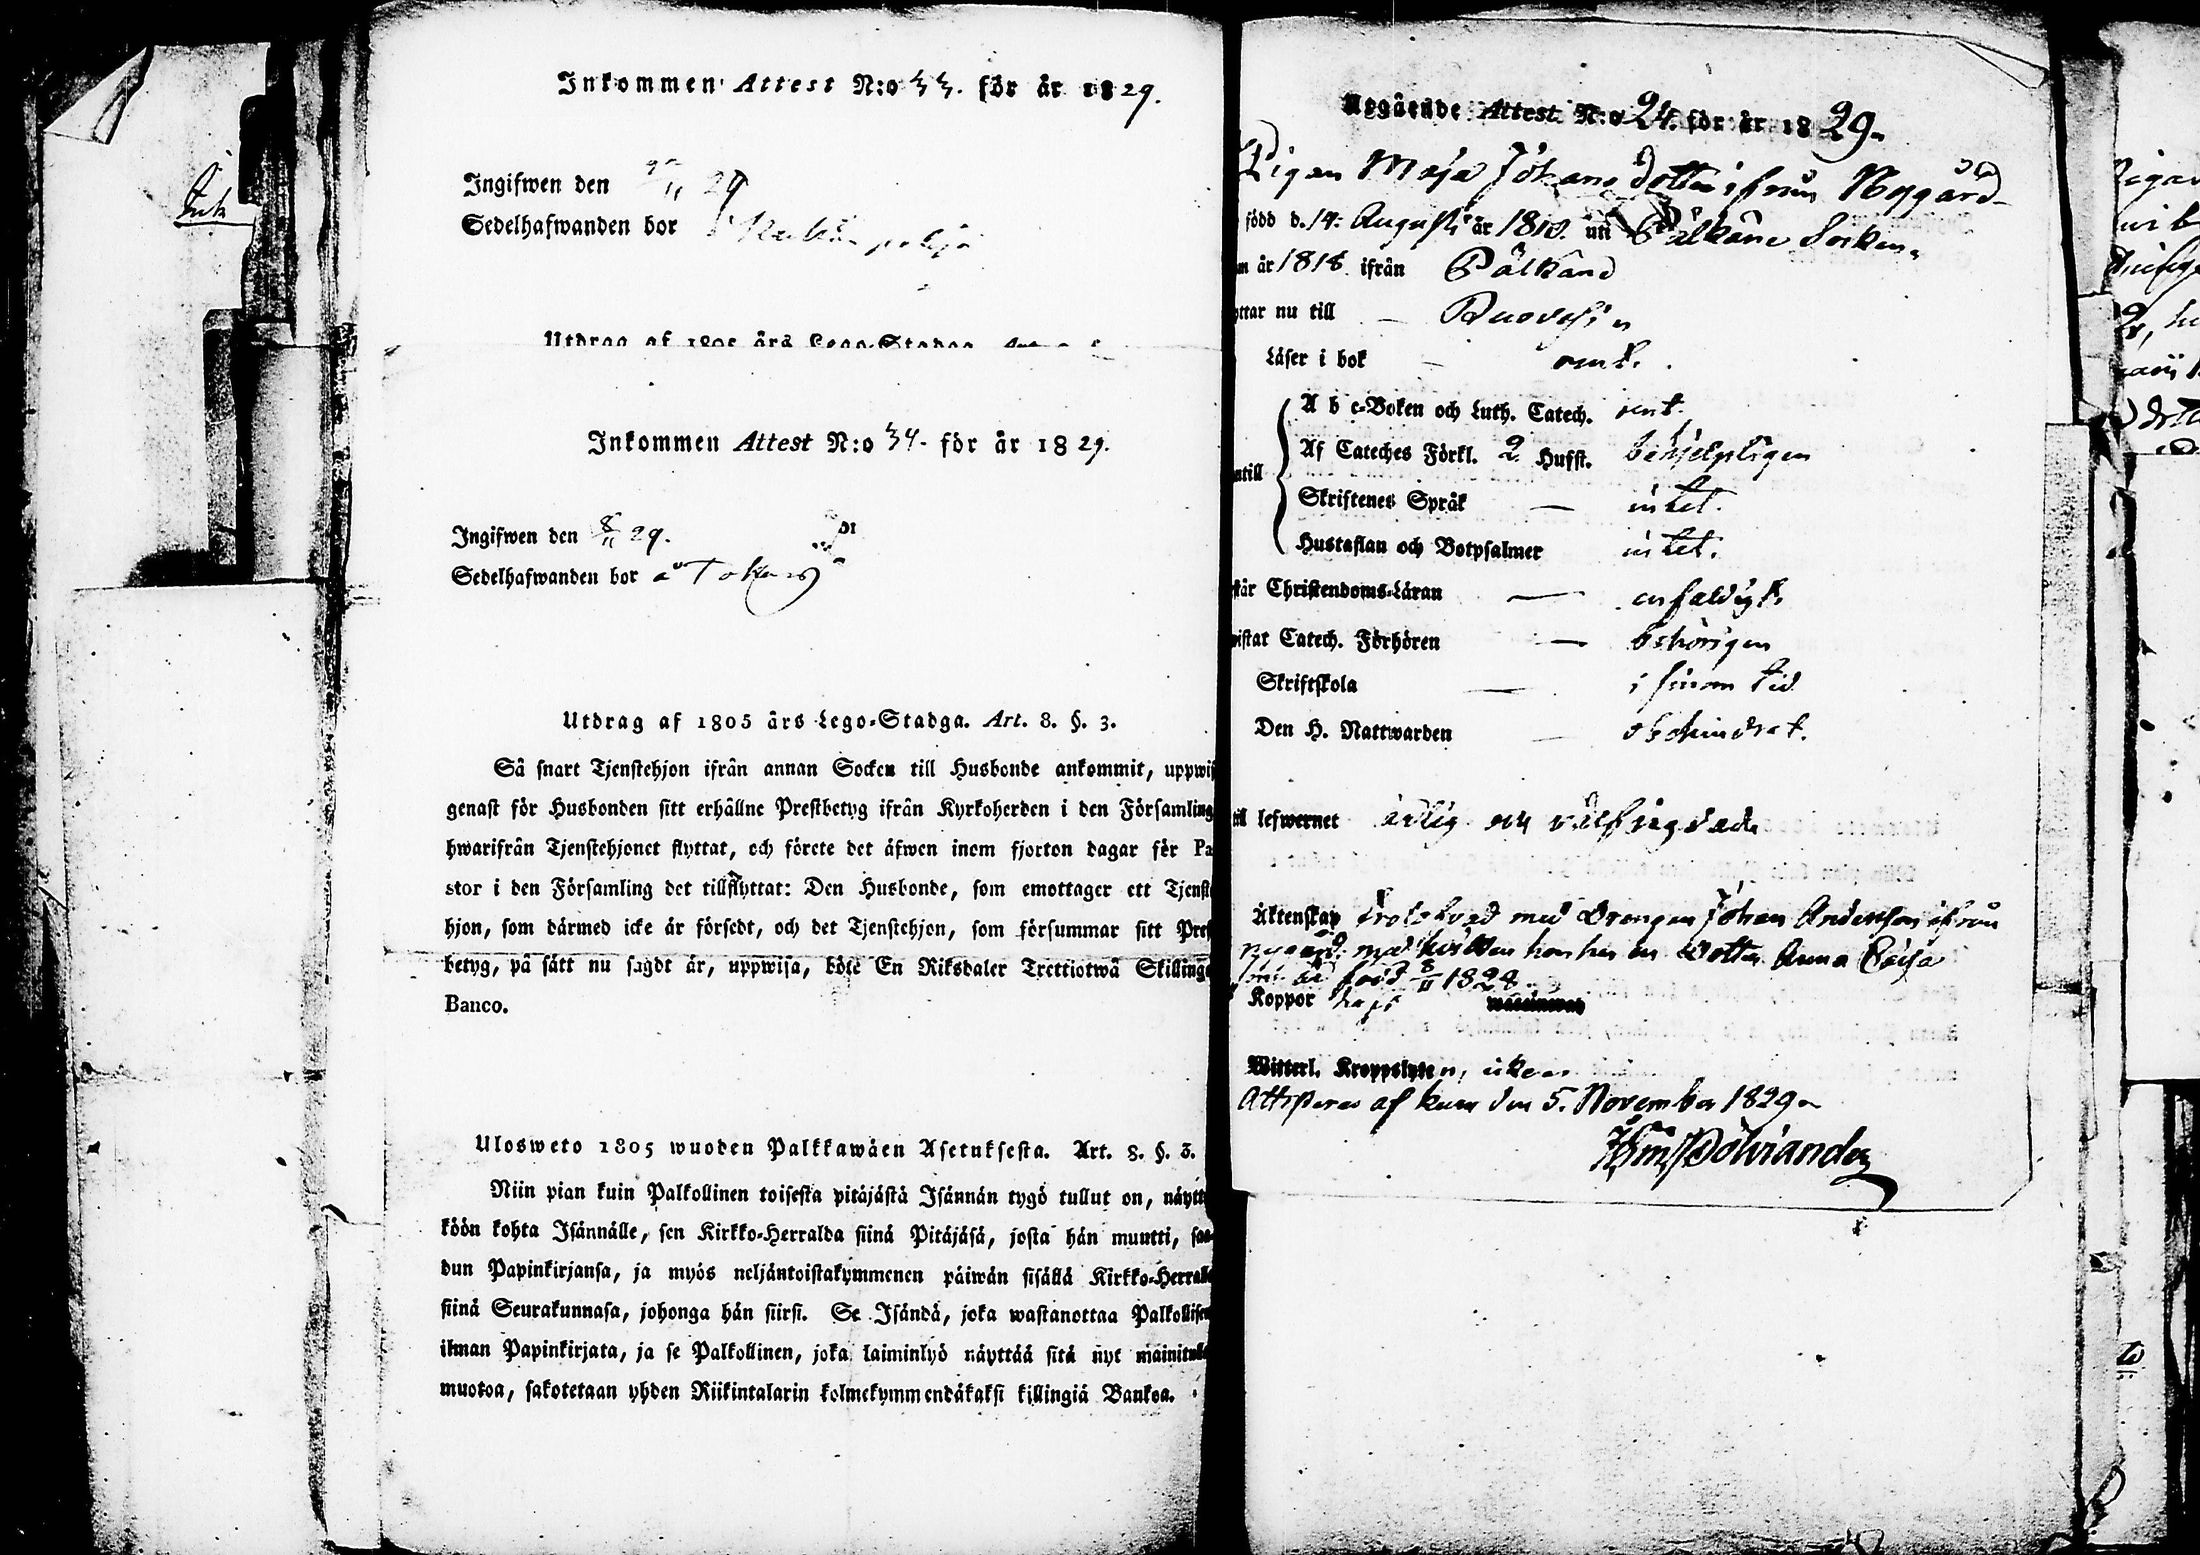 Inkommen Attest N:o 33. för år 1829.
Ingifwen den 29
Sedelhafwanden bor
Utdrag af 1805 års Lego-Stadga.
Inkommen Attest N:o 34. för år 1829.
Ingifwen den 8/11 29.
Sedelhafwanden bor å
Utdrag af 1805 års Lego-Stadga. Art. 8. §. 3.
Så snart Tjenstehjon ifrån annan Socken till Husbonde ankommit, uppwis
genast för Husbonden sitt erhållne Prestbetyg ifrån Kyrkoherden i den Församling
hwarifrån Tjenstehjonet flyttat, och förete det äfwen inom fjorton dagar för Pa
stor i den Församling det tillflyttat: Den Husbonde, som emottager ett Tjenst
hjon, som därmed icke är försedt, och det Tjenstehjon, som försummar sitt Pres
betyg, på sätt nu sagdt är, uppwisa, böte En Riksdaler Trettiotwå Skillings
Banco.
Ulosweto 1805 wuoden Palkkawäen Asetuksesta. Art. 8. §. 3.
Niin pian kuin Palkollinen toisesta pitäjästä Isännän tygö tullut on, näytt
köön kohta Isännälle, sen Kirkko-Herralda siinä Pitäjäsä, josta hän muutti, saa
dun Papinkirjansa, ja myös neljäntoistakymmenen päiwän sisällä Kirkko-Herralle
siinä Seurakunnasa, johonga hän siirsi. Se Isändä, joka wastanottaa Palkollisen
ilman Papinkirjata, ja se Palkollinen, joka laiminlyö näyttää sitä nyt mainitulla
muotoa, sakotetaan yhden Riikintalarin kolmekymmendäkaksi killingiä Bankoa.
Utgående Attest N:o 24. för år 1829.
Pigan Maja Johans Dotter ifrån Nygård
född d. 14. Augusti år 1810. uti Pälkäne Socken.
m år 1818 ifrån Pälkäne
yttar nu till — Ruovesi
Läser i bok — rent.
A b c-Boken och Luth. Catech. rent.
Af Cateches Förkl. 2 Hufst. behjelpligen
ntill
Skriftenes Språk — intet.
Hustaflan och Botpsalmer intet.
står Christendoms-Läran — enfaldigt.
wistat Catech. Förhören — behörigen
Skriftskola — i sinom tid
Den H. Nattwarden — obehindrat.
till lefwernet ärlig och välfrägdad
Äktenskap trolofvad med Drengen Johan Andersson ifrån
nygård, med hvilken hon har en Dotter Anna Caisa
som är född 8/11 1828.
Koppor haft
Witterl. Kroppslyten, ingen
Attesteras af Kuru den 5. November 1829